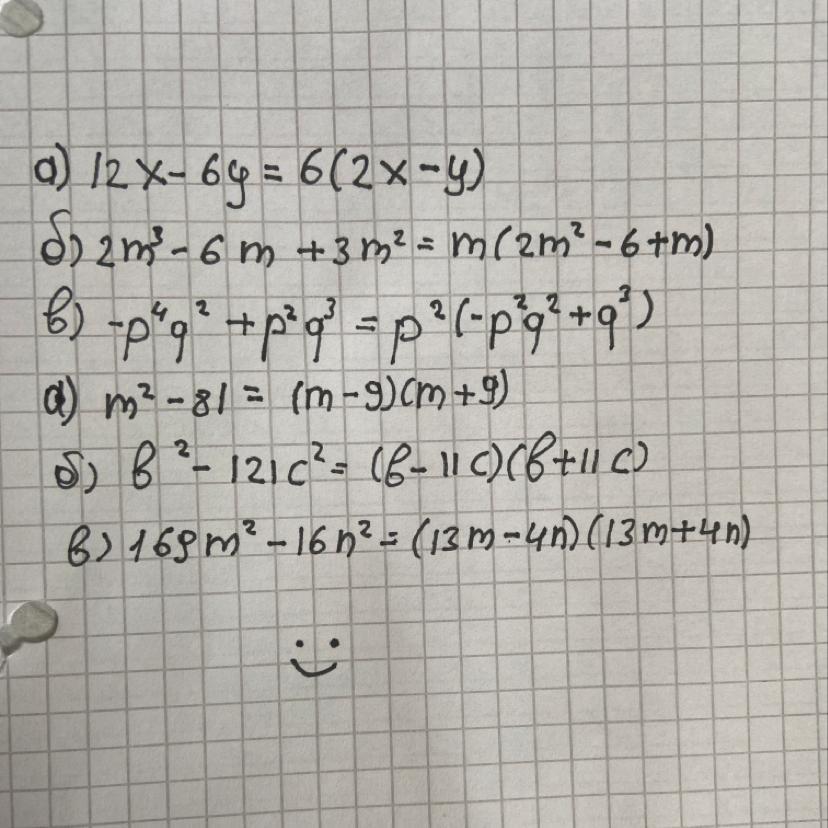 а) 12x - 6y = 6(2x - y)
б) 2m³ - 6m + 3m² = m(2m² - 6 + m)
в) -p⁴q² + p²q³ = p²(-p²q² + q³)
а) m² - 81 = (m - 9)(m + 9)
б) b² - 121c² = (b - 11c)(b + 11c)
в) 169m² - 16n² = (13m - 4n)(13m + 4n)